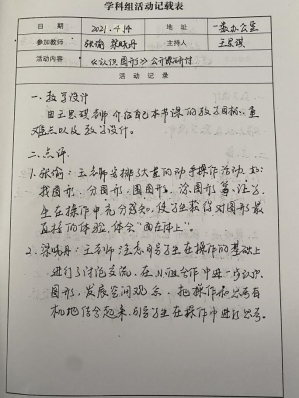 学科组活动记载表
日期 2021.4.14 地址 一数办公室
参加教师 张瑜 梁晓丹 主持人 王思琪
活动内容 《认识图形》公开课研讨
活动记录
一、教学设计
由王思琪老师介绍自己本节课的教学目标、重
难点以及教学设计。
二、点评
1、张瑜：王老师安排了大量的动手操作活动，如：
找图形、分图形、围图形、涂图形等，让学
生在操作中充分感知，使学生获得对图形最
直接的体验，体会“面在体上”。
2、梁晓丹：王老师注意引导学生在操作的基础上
进行了讨论交流，在小组合作中进一步认识
图形，发展空间观念，把操作和思考有
机地结合起来，引导学生在操作中进行思考。